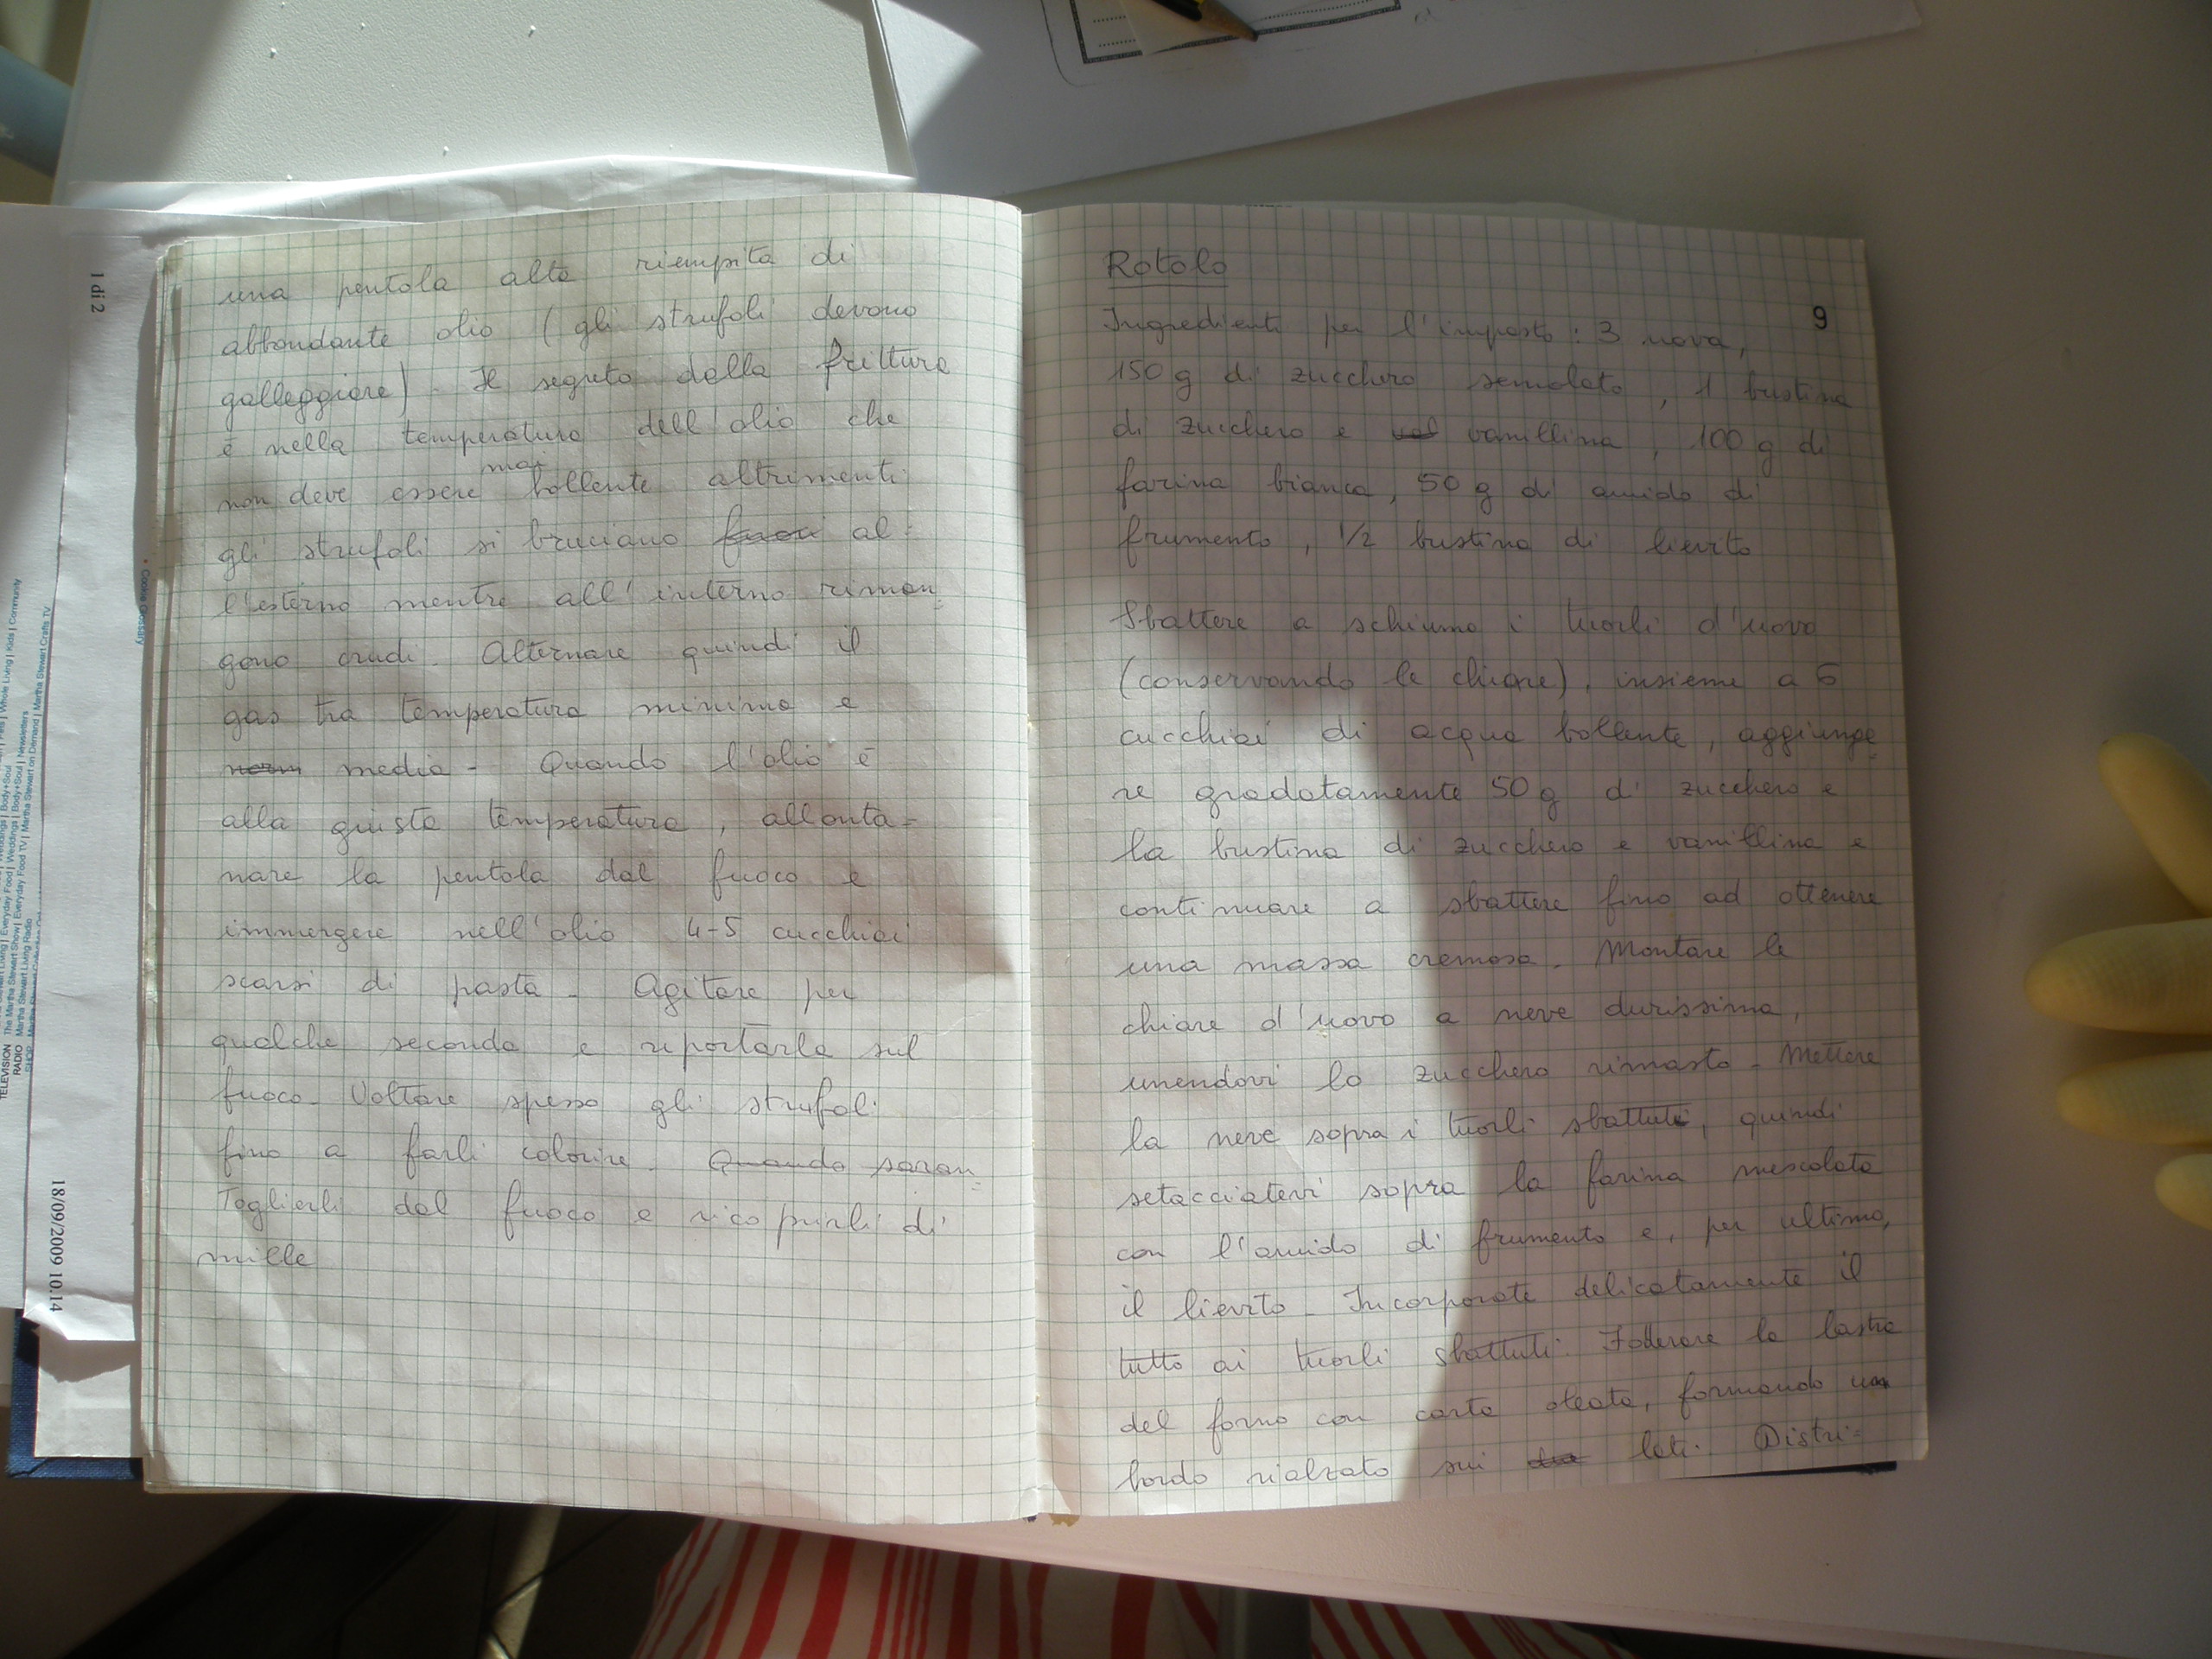 una pentola alta riempita di
abbondante olio (gli strufoli devono
galleggiare). Il segreto della frittura
è nella temperatura dell'olio che
mai
non deve essere bollente altrimenti
gli strufoli si bruciano fuori al=
l'esterno mentre all'interno riman=
gono crudi. Alternare quindi il
gas tra temperatura minima e
media - Quando l'olio è
alla giusta temperatura, allonta=
nare la pentola dal fuoco e
immergere nell'olio 4-5 cucchiai
scarsi di pasta - Agitare per
qualche secondo e riportarla sul
fuoco - Voltare spesso gli strufoli
fino a farli colorire - Quando saran=
Toglierli dal fuoco e ricoprirli di
mille
Rotolo
9
Ingredienti per l'impasto: 3 uova,
150 g di zucchero semolato, 1 bustina
di zucchero e val vanillina, 100 g di
farina bianca, 50 g di amido di
frumento, 1/2 bustina di lievito
Sbattere a schiuma i tuorli d'uovo
(conservando le chiare), insieme a 6
cucchiai di acqua bollente, aggiunge=
re gradatamente 50 g di zucchero e
la bustina di zucchero e vanillina e
continuare a sbattere fino ad ottenere
una massa cremosa - Montare le
chiare d'uovo a neve durissima,
unendovi lo zucchero rimasto - Mettere
la neve sopra i tuorli sbattuti, quindi
setacciatevi sopra la farina mescolata
con l'amido di frumento e, per ultimo,
il lievito - Incorporate delicatamente il
tutto ai tuorli sbattuti. Foderare la lastra
del forno con carta oleata, formando un
bordo rialzato sui due lati. Distri=
1 di 2
18/09/2009 10.14
Cookie Glossary
TELEVISION The Martha Stewart Show | Everyday Food TV | Martha Stewart on Demand | Martha Stewart Crafts TV
RADIO Martha Stewart Living Radio
SHOP